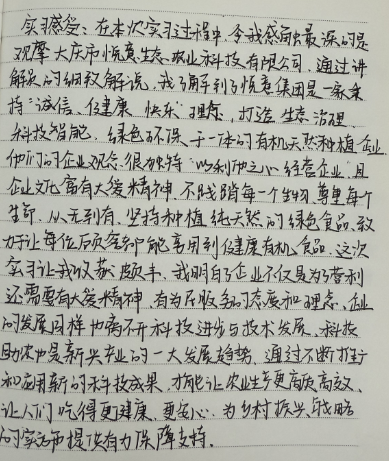 实习感受：在本次实习过程中，令我感触最深的是
观摩大庆市悦意生态农业科技有限公司，通过讲
解员的细致解说，我了解到了悦意集团是一家秉
持"诚信、健康、快乐"理念，打造生态治理、
科技智能、绿色环保于一体的有机天然种植企业
他们的企业观念很独特"以利他之心经营企业，且
企业文化富有大爱精神，不践踏每一个生物，尊重每个
生命，从无到有，坚持种植纯天然的绿色食品，致
力于让每位后顾客都能享用到健康有机食品。这次
实习让我收获颇丰，我明白了企业不仅是为了营利
还需要有大爱精神，有为民服务的态度和理念，企业
的发展同样也离不开科技进步与技术发展，科技
助农也是新兴产业的一大发展趋势，通过不断推行
和应用新的科技成果，才能让农业生产更高质高效，
让人们吃得更健康、更安心，为乡村振兴战略
的实施提供有力保障支持。